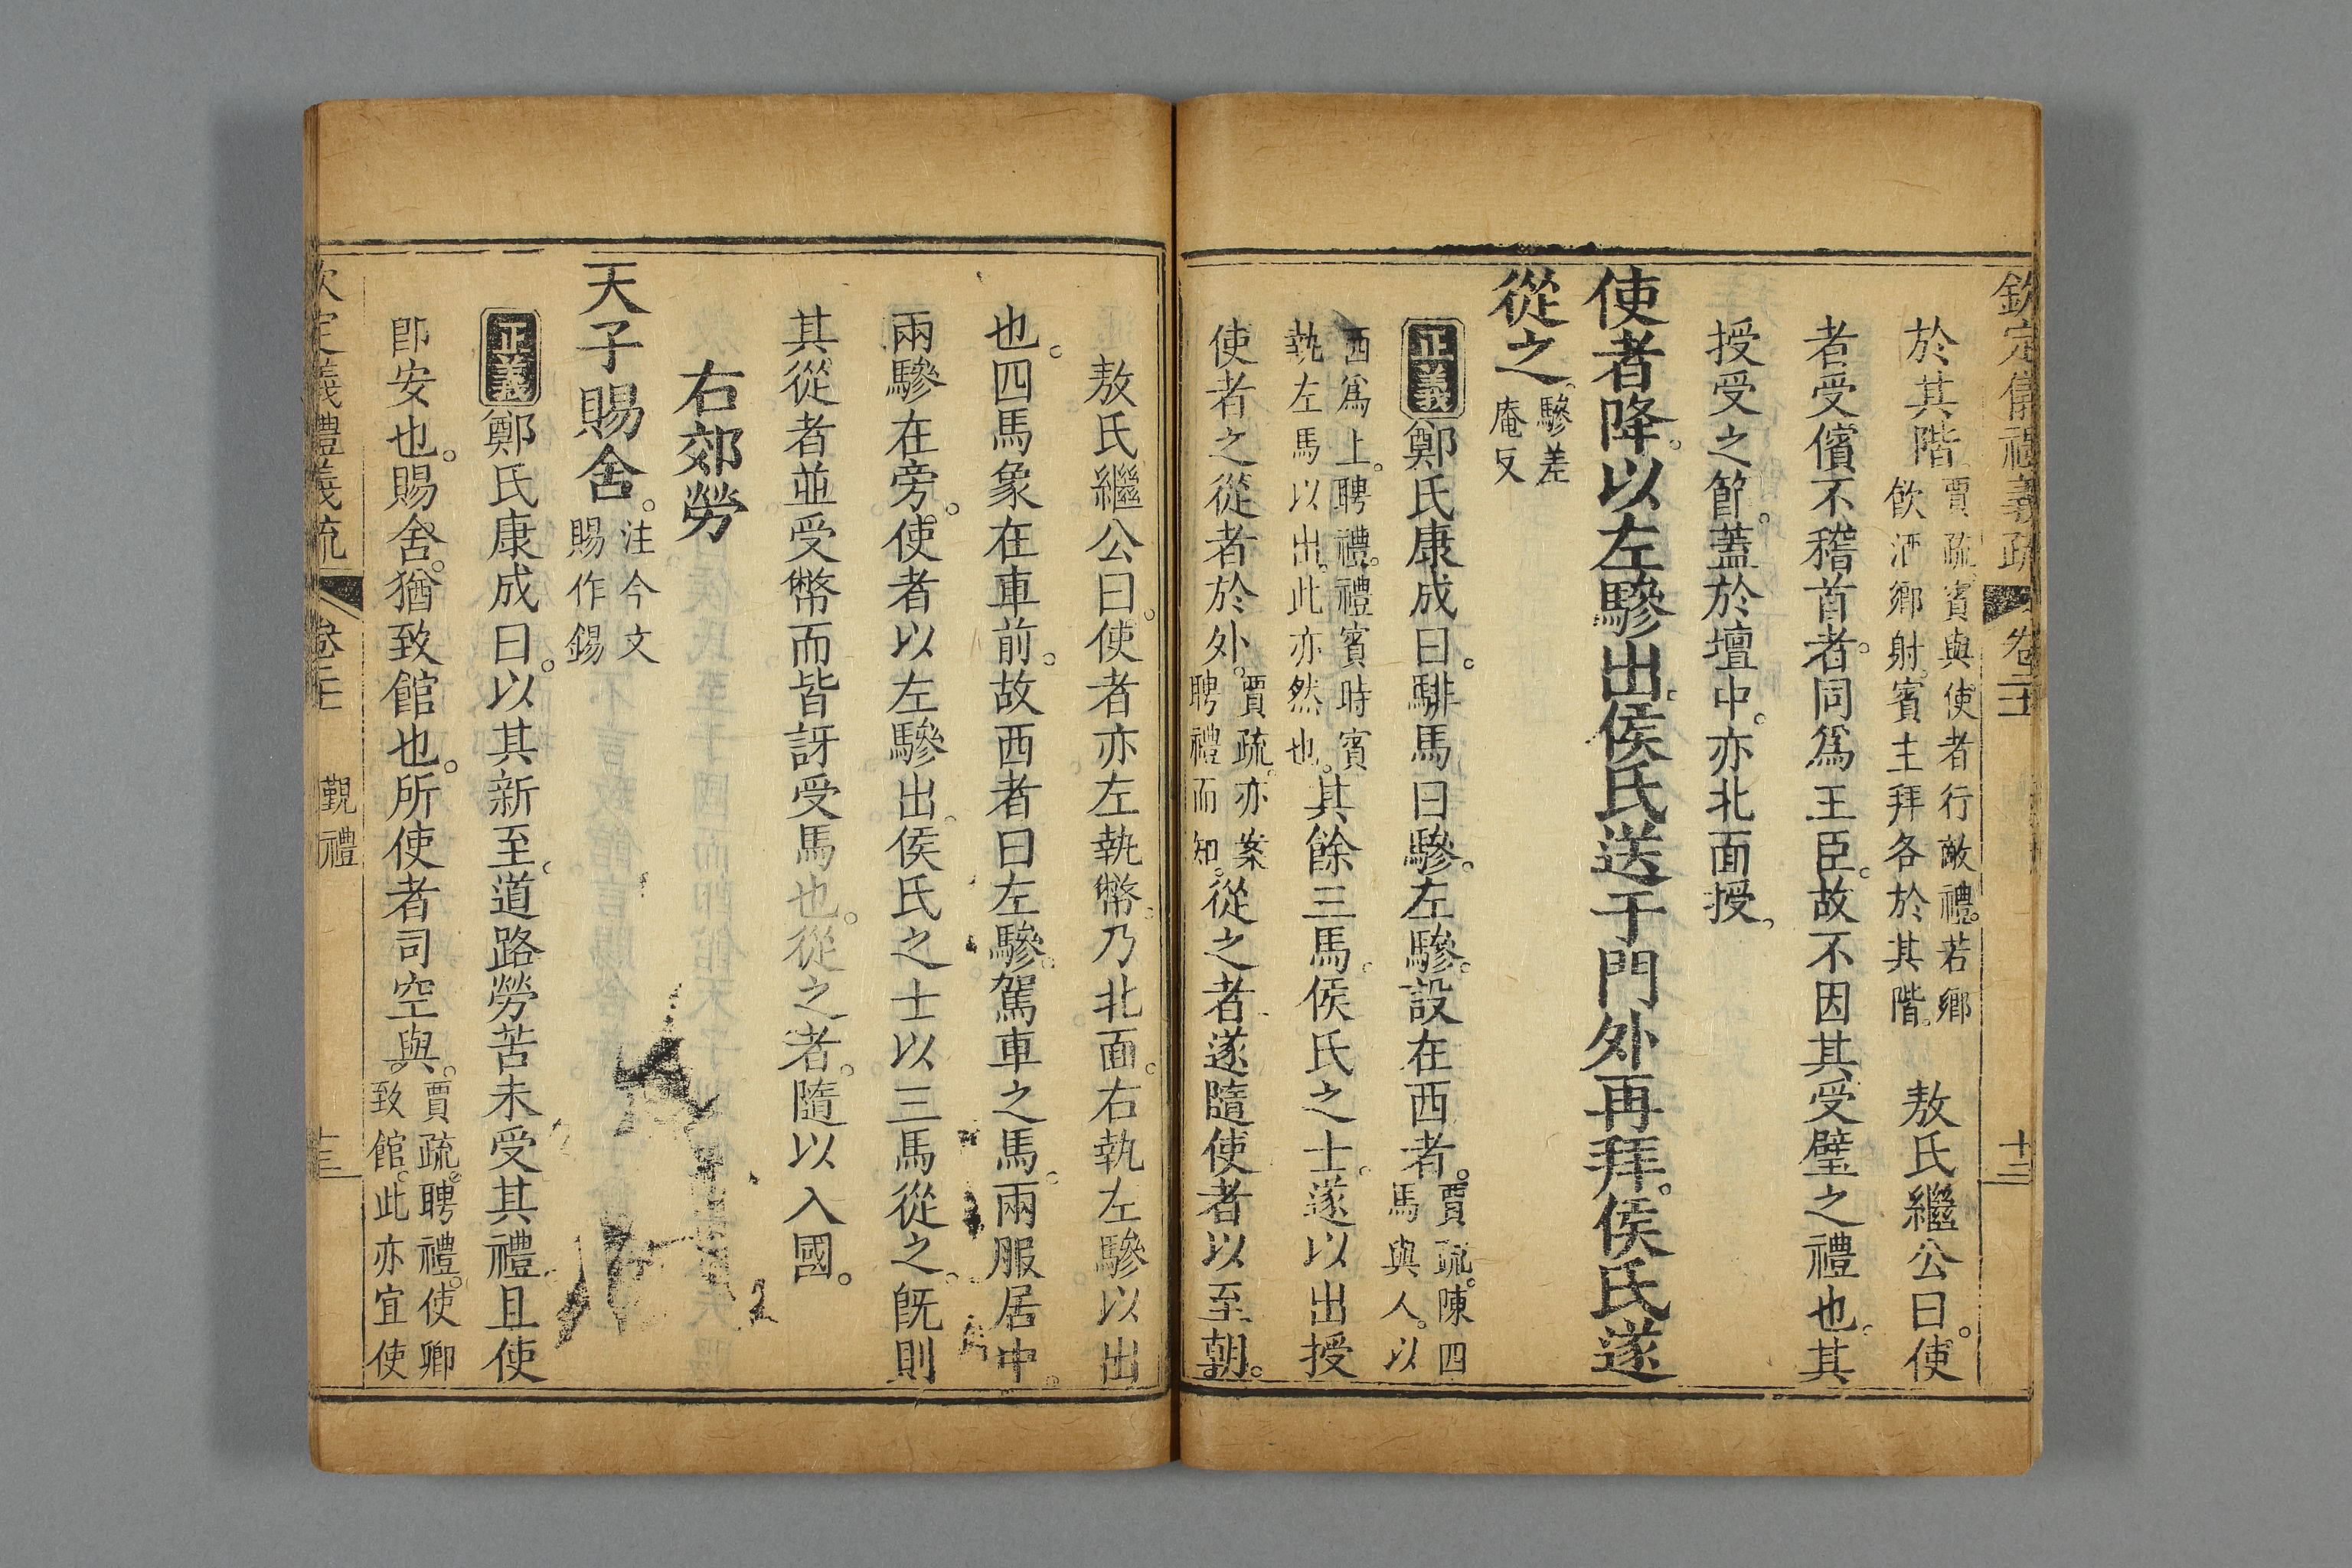 欽定儀禮義疏 卷二十 十三
於其階賈疏。賓與使者行敵禮。若鄉飲酒鄉射。賓主拜各於其階。 敖氏繼公曰。使
者受儐不稽首者。同爲王臣。故不因其受璧之禮也。其
授受之節。蓋於壇中。亦北面授。
使者降。以左驂出。侯氏送于門外再拜。侯氏遂
從之。驂差庵反
正義鄭氏康成曰。騑馬曰驂。左驂。設在西者。賈疏。陳四馬與人。以
西爲上。聘禮。禮賓時賓執左馬以出。此亦然也。其餘三馬。侯氏之士。遂以出授
使者之從者於外。賈疏。亦案聘禮而知。從之者遂隨使者以至朝。
敖氏繼公曰。使者亦左執幣。乃北面。右執左驂以出
也。四馬象在車前。故西者曰左驂。駕車之馬。兩服居中。
兩驂在旁。使者以左驂出。侯氏之士以三馬從之。旣則
其從者並受幣而皆訝受馬也。從之者。隨以入國。
右郊勞
天子賜舍。注今文賜作錫
正義鄭氏康成曰。以其新至。道路勞苦未受其禮。且使
卽安也。賜舍。猶致館也。所使者司空與。賈疏。聘禮。使卿致館。此亦宜使
欽定義禮義疏 卷二十 覲禮 十三